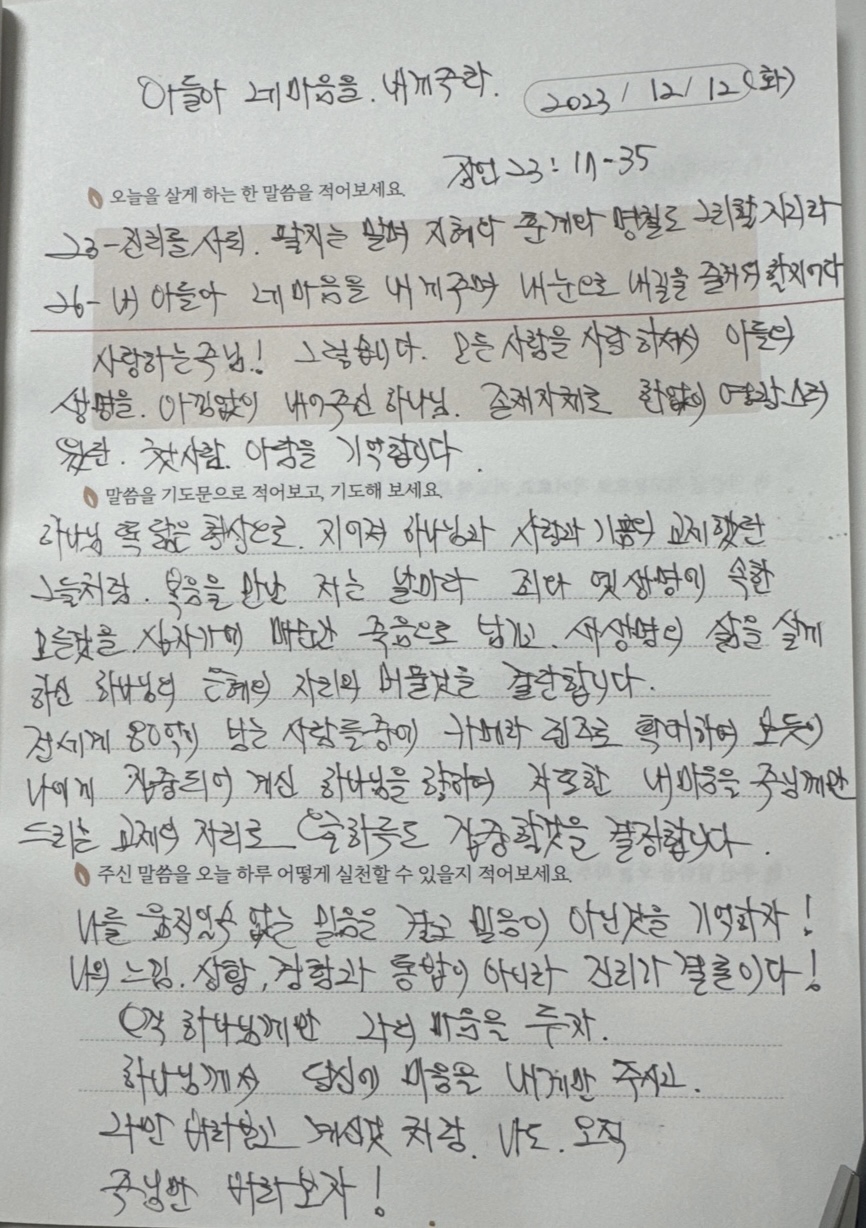 아들아 네 마음을. 내게 주라.
2023 / 12 / 12 (화)
잠언 23 : 17-35
오늘을 살게 하는 한 말씀을 적어보세요.
23-진리를 사되. 팔지는 말며 지혜와 훈계와 명철도 그리할지니라
26- 내 아들아 네 마음을 내게 주며 네 눈으로 내 길을 즐거워할지어다
사랑하는 주님! 그렇습니다. 모든 사람을 사랑하셔서 아들의
생명을. 아낌없이 내어주신 하나님. 존재자체로 한없이 영광스러
웠던. 첫사람. 아담을 기억합니다.
말씀을 기도문으로 적어보고, 기도해 보세요.
하나님 꼭 닮은 형상으로. 지어져 하나님과 사랑과 기쁨의 교제했던
그들처럼. 복음을 만난 저는 날마다 죄와 옛생명에 속한
모든것을. 십자가에 매순간 죽음으로 넘기고. 새생명의 삶을 살게
하신 하나님의 은혜의 자리에 머물것을 결단합니다.
전세계 80억이 넘는 사람들중에 카메라 렌즈로 확대하여 보듯이
나에게 집중되어 계신 하나님을 향하여 저 또한 내마음을 주님께만
드리는 교제의 자리로 오늘하루도 집중할것을 결정합니다.
주신 말씀을 오늘 하루 어떻게 실천할 수 있을지 적어보세요.
나를 움직일수 없는 믿음은 결코 믿음이 아닌것을 기억하자!
나의 느낌. 상황, 경험과 통밥이 아니라 진리가 결론이다!
오직 하나님께만 나의 마음을 두자.
하나님께서 당신의 마음을 내게만 주시고.
나만 바라보고 계신것 처럼. 나도. 오직
주님만 바라보자!